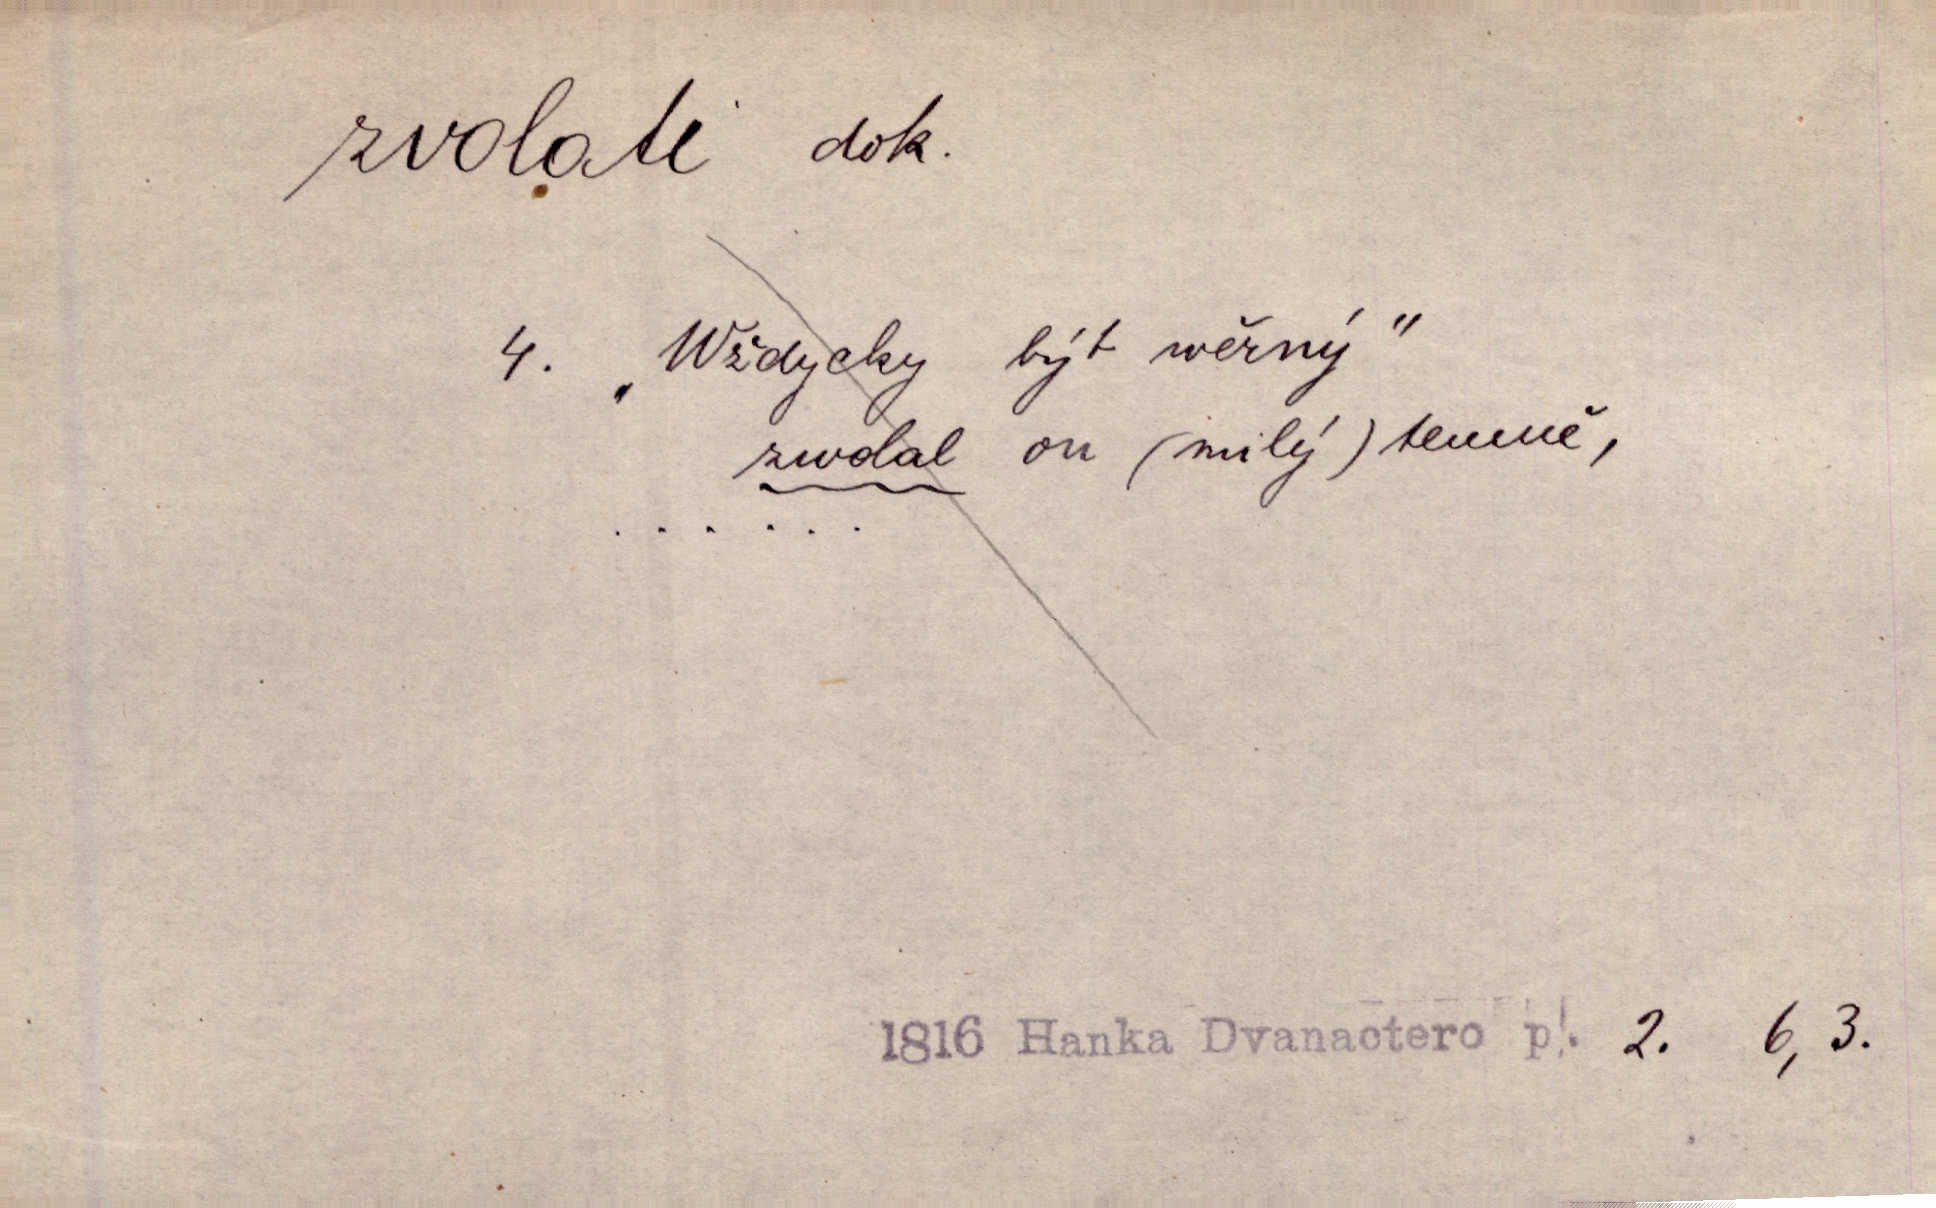 zvolati dok.
4. „Wždycky být wěrný"
zwolal on (milý) temně,
. . . . . .
1816 Hanka Dvanactero p. 2. 6, 3.